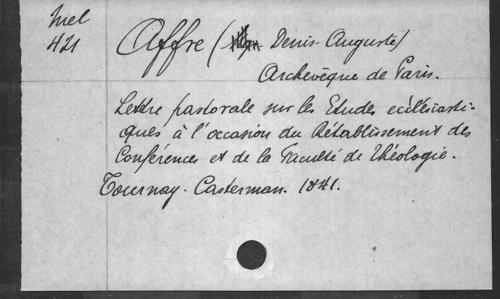 Mel
421
Affre ( Denis-Auguste)
Archevêque de Paris.
Lettre pastorale sur les Etudes ecclésiasti-
ques à l'occasion du Rétablissement des
Conférences et de la Faculté de Théologie.
Tournay. Casterman. 1841.